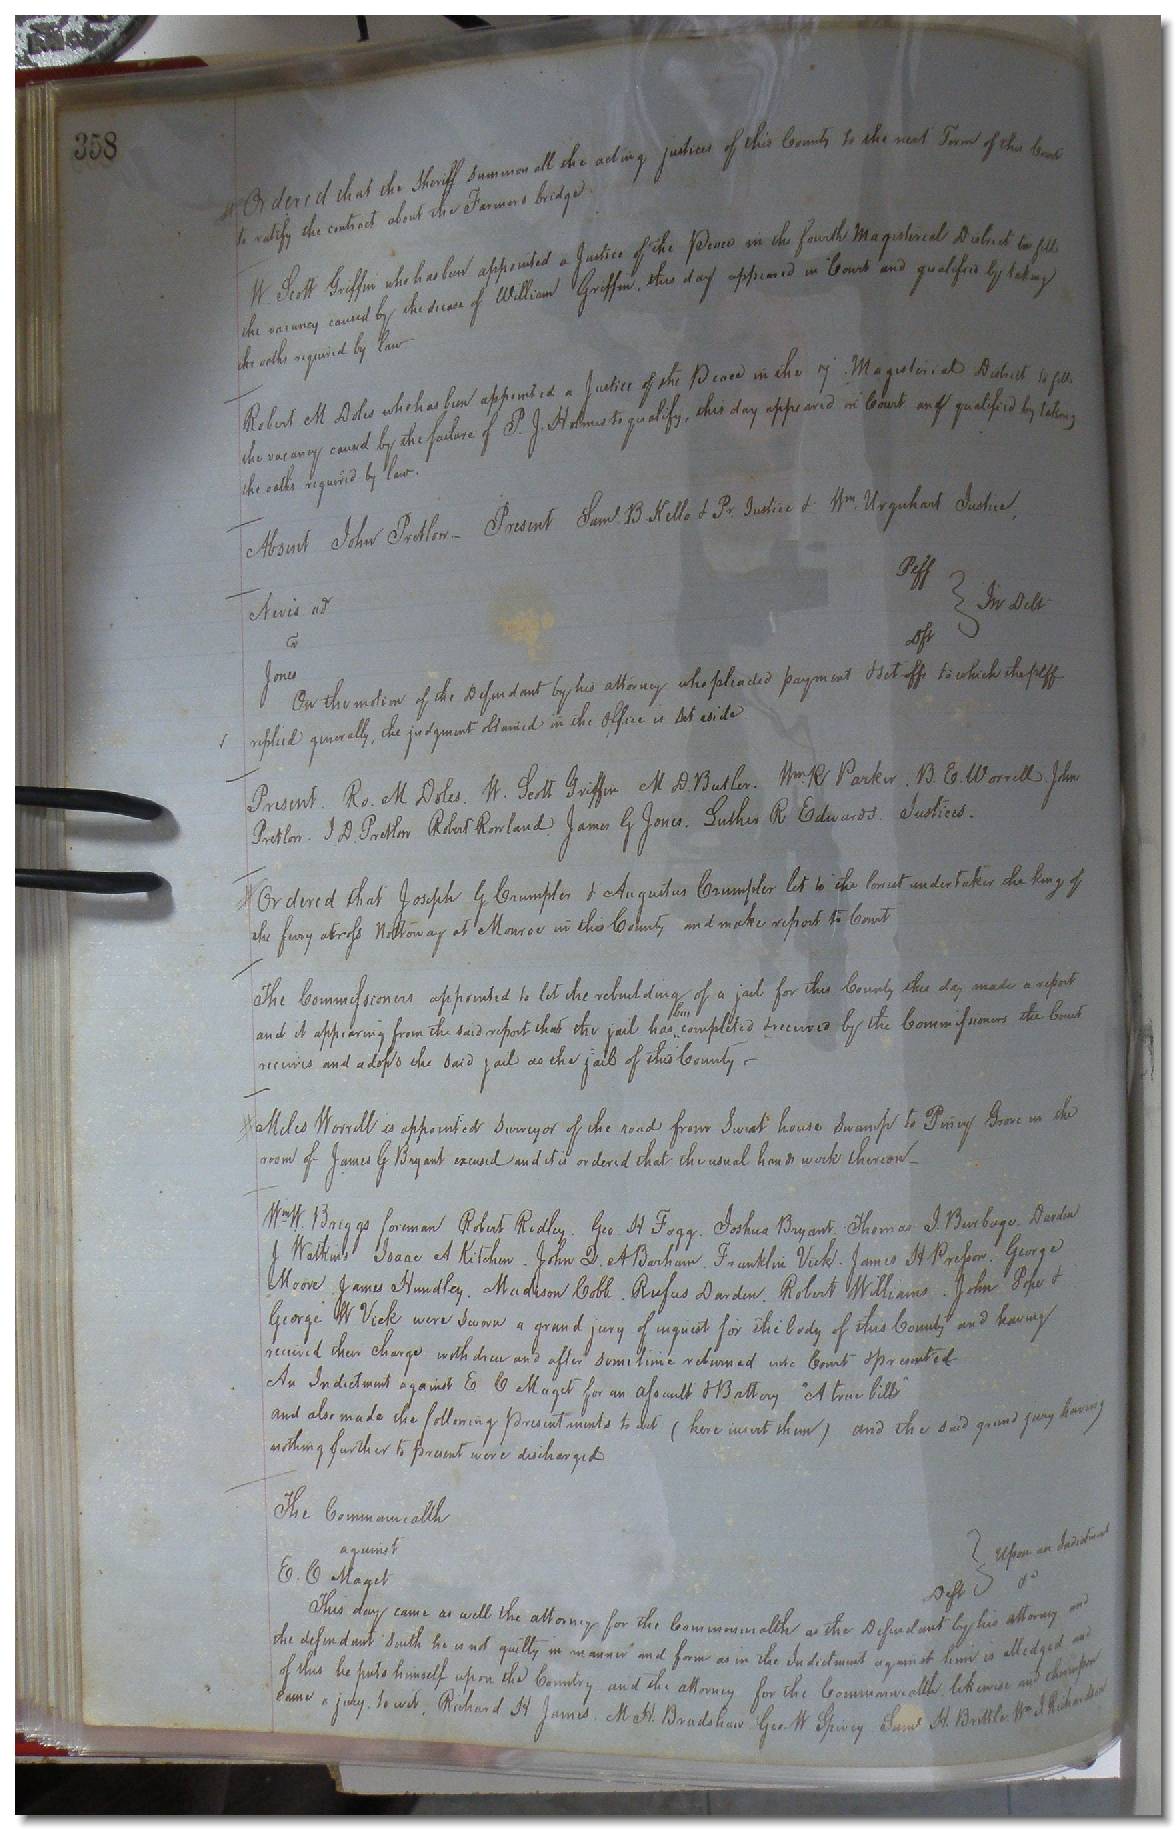 358
Ordered that the Sheriff summon all the acting justices of this County to the next Term of this Court
to ratify the contract about the Farmers bridge
W Scott Griffin who has been appointed a Justice of the Peace in the fourth Magisterial District to fill
the vacancy caused by the decease of William Griffin, this day appeared in Court and qualified by taking
the oaths required by law
Robert M Doles who has been appointed a Justice of the Peace in the 7 Magisterial District to fill
the vacancy caused by the failure of P. J. Holmes to qualify, this day appeared in Court and qualified by taking
the oaths required by law.
Absent John Pretlow - Present Saml. B Kello & Pr. Justice & Wm. Urquhart Justice,
Nevis ad Peff
vs In Debt
Jones Dft
On the motion of the Defendant by his attorney who pleaded payment & set offs to which the plff
replied generally, the judgment obtained in the office is set aside
Present. Ro. M Doles. W. Scott Griffin M D. Butler. Wm. R Parker. B. E. Worrell. John
Pretlow. J. D. Pretlow Robert Rowland. James G Jones. Luther R Edwards. Justices.
Ordered that Joseph G Crumpler & Augustus Crumpler let to the lowest undertaker the king of
the ferry across Nottoway at Monroe in this County and make report to Court
The Commissioners appointed to let the rebuilding of a jail for this County this day made a report
and it appearing from the said report that the jail has been completed & received by the Commissioners the Court
receives and adopts the said jail as the jail of this County -
Miles Worrell is appointed Surveyor of the road from Sweat house Swamp to Piney Grove in the
room of James G Bryant excused and it is ordered that the usual hands work thereon -
Wm W. Briggs foreman Robert Ridley. Geo. H Fogg. Joshua Bryant. Thomas J. Burbage. Darden
J Watkins Isaac A Kitchen. John D. A Barham. Franklin Vick. James H Presson. George
Moore. James Hundley. Madison Cobb. Rufus Darden. Robert Williams. John Pope &
George W Vick were sworn a grand jury of inquest for the body of this County and having
received their charge withdrew and after sometime returned into Court & presented
An Indictment against E C Maget for an assault & Battery "A true bill"
and also made the following presentments to wit (here insert them) and the said grand jury having
nothing further to present were discharged
The Commonwealth
against Upon an Indictment
E. C Maget Deft
This day came as well the attorney for the Commonwealth as the Defendant by his attorney and
the defendant saith he is not guilty in manner and form as in the Indictment against him is alledged and
of this he puts himself upon the Country and the attorney for the Commonwealth likewise and thereupon
came a jury to wit, Richard H James. M H. Bradshaw Geo. W Spivey Saml. H. Brittle. Wm J. Richardson